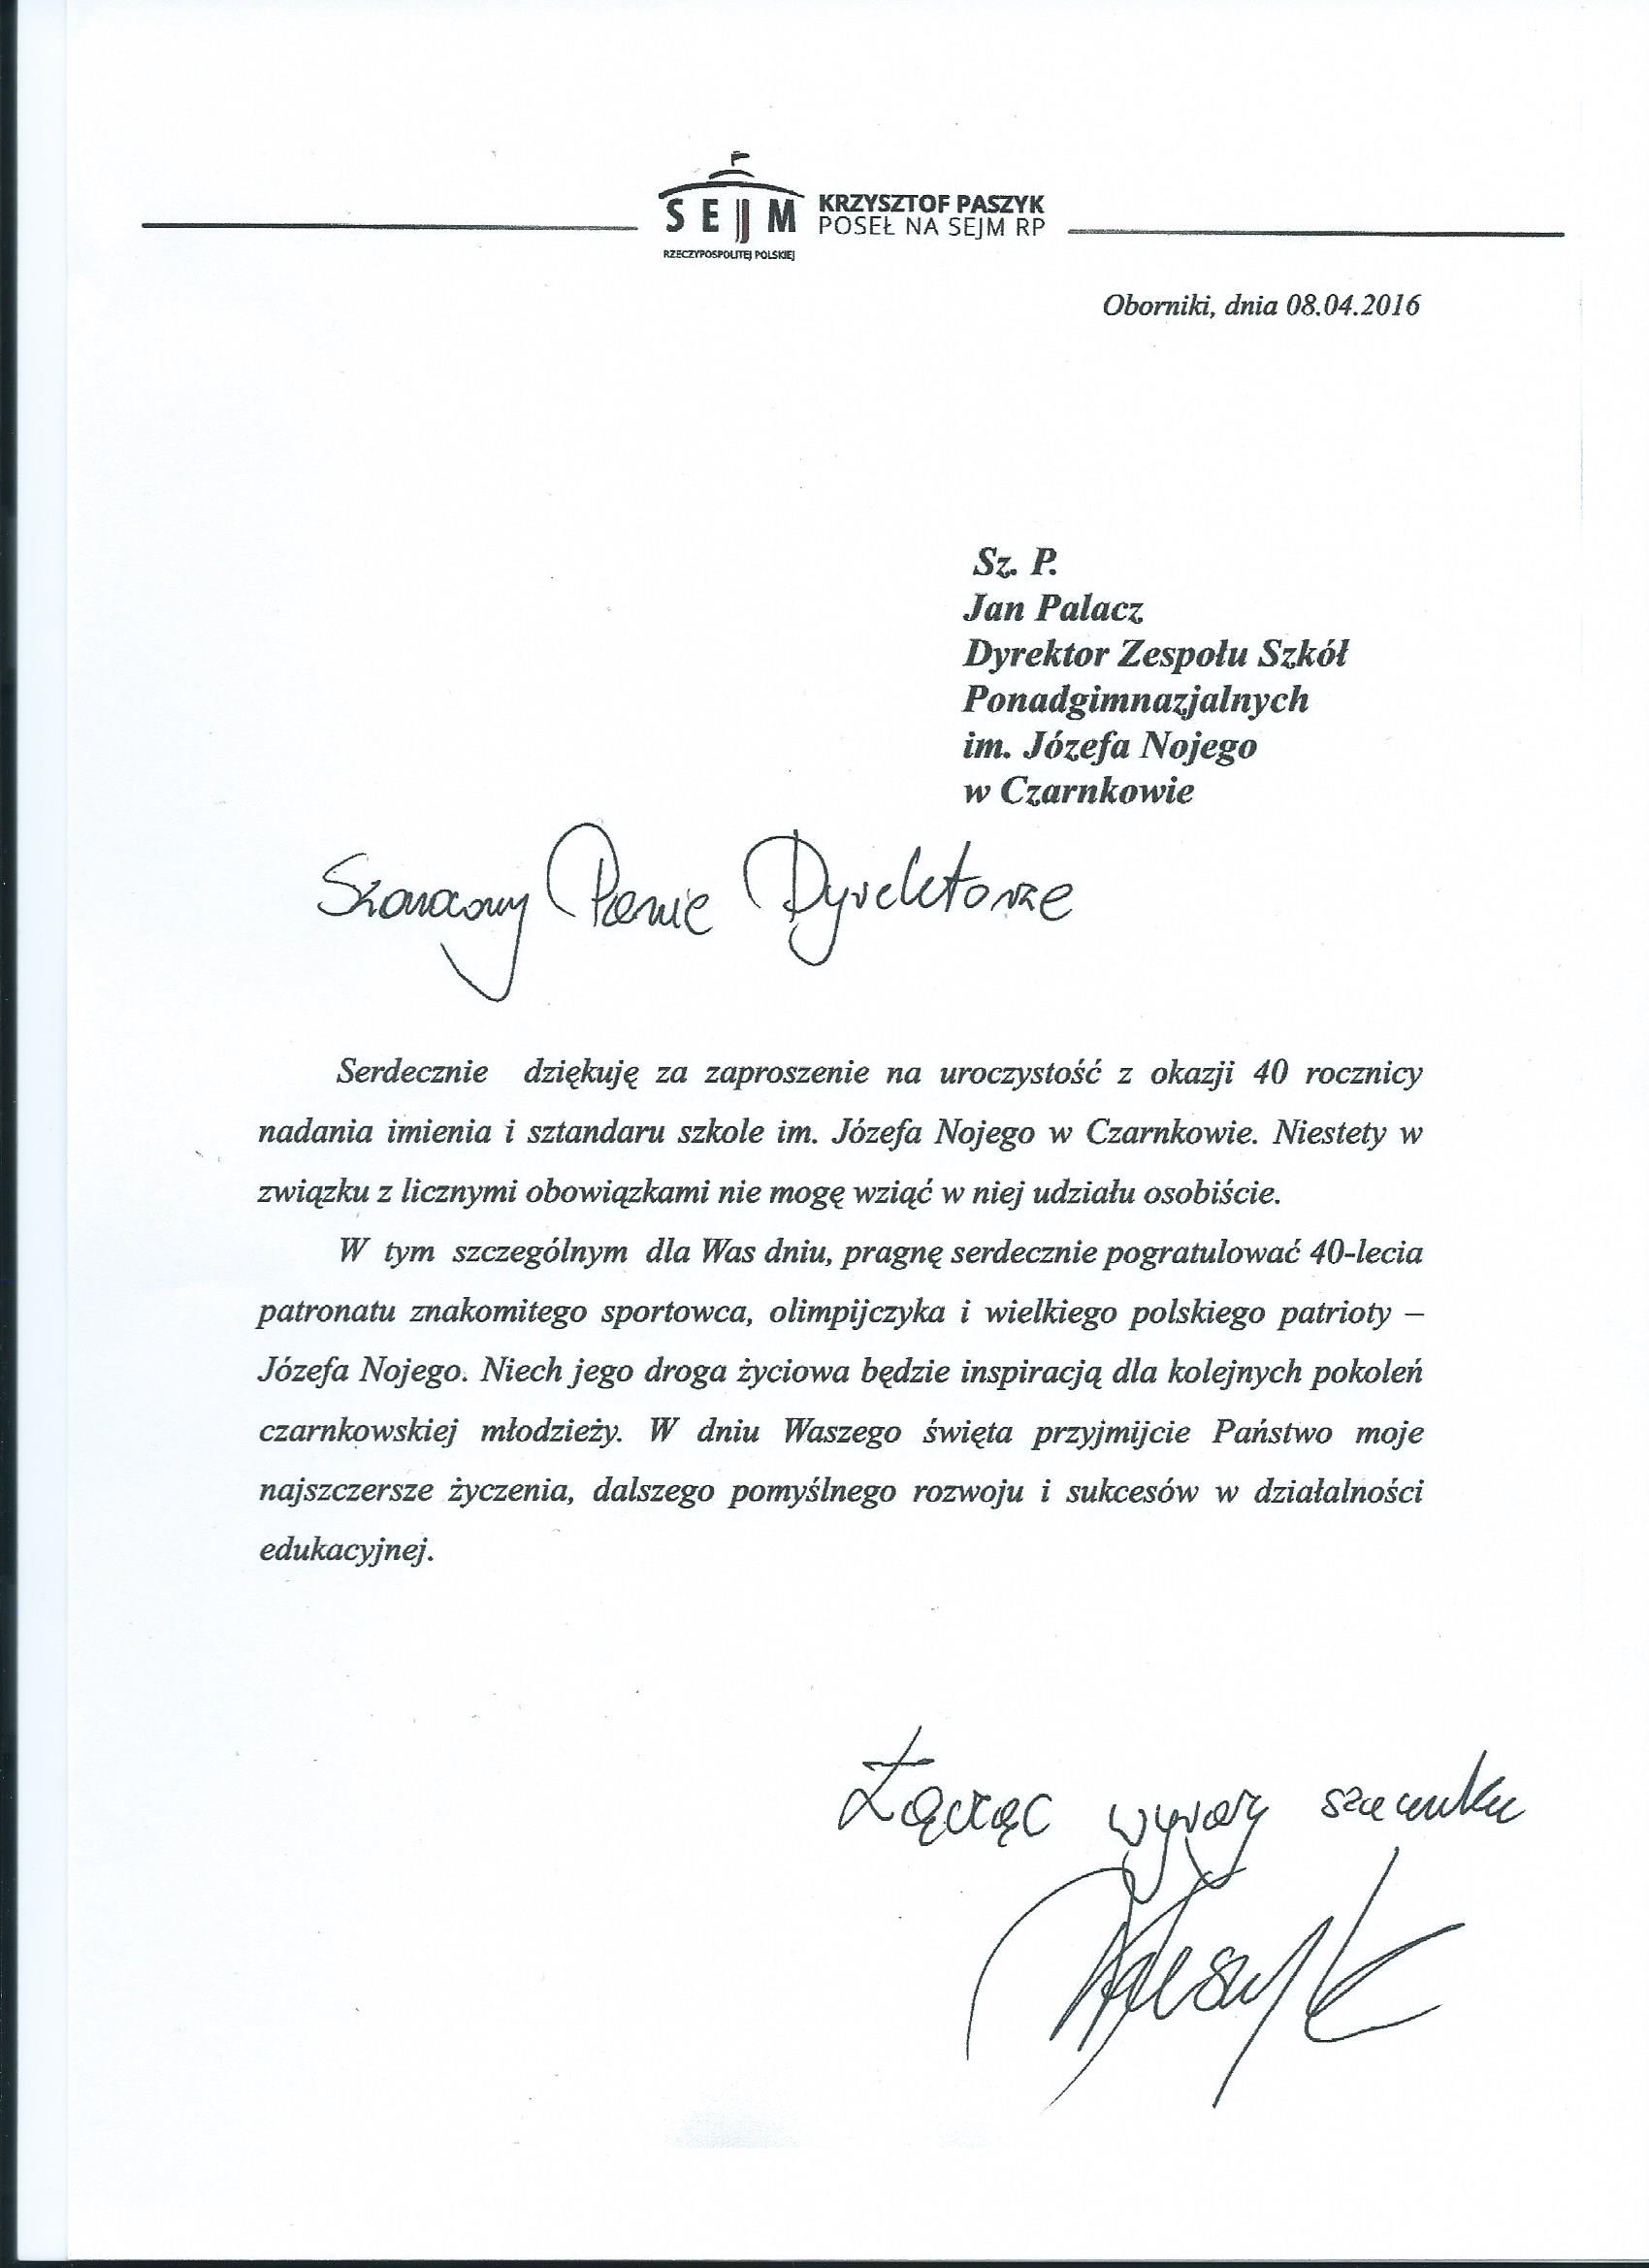 SEJM
RZECZYPOSPOLITEJ POLSKIEJ
KRZYSZTOF PASZYK
POSEŁ NA SEJM RP
Oborniki, dnia 08.04.2016
Sz. P.
Jan Palacz
Dyrektor Zespołu Szkół
Ponadgimnazjalnych
im. Józefa Nojego
w Czarnkowie
Szanowny Panie Dyrektorze
Serdecznie dziękuję za zaproszenie na uroczystość z okazji 40 rocznicy
nadania imienia i sztandaru szkole im. Józefa Nojego w Czarnkowie. Niestety w
związku z licznymi obowiązkami nie mogę wziąć w niej udziału osobiście.
W tym szczególnym dla Was dniu, pragnę serdecznie pogratulować 40-lecia
patronatu znakomitego sportowca, olimpijczyka i wielkiego polskiego patrioty –
Józefa Nojego. Niech jego droga życiowa będzie inspiracją dla kolejnych pokoleń
czarnkowskiej młodzieży. W dniu Waszego święta przyjmijcie Państwo moje
najszczersze życzenia, dalszego pomyślnego rozwoju i sukcesów w działalności
edukacyjnej.
Łącząc wyrazy szacunku